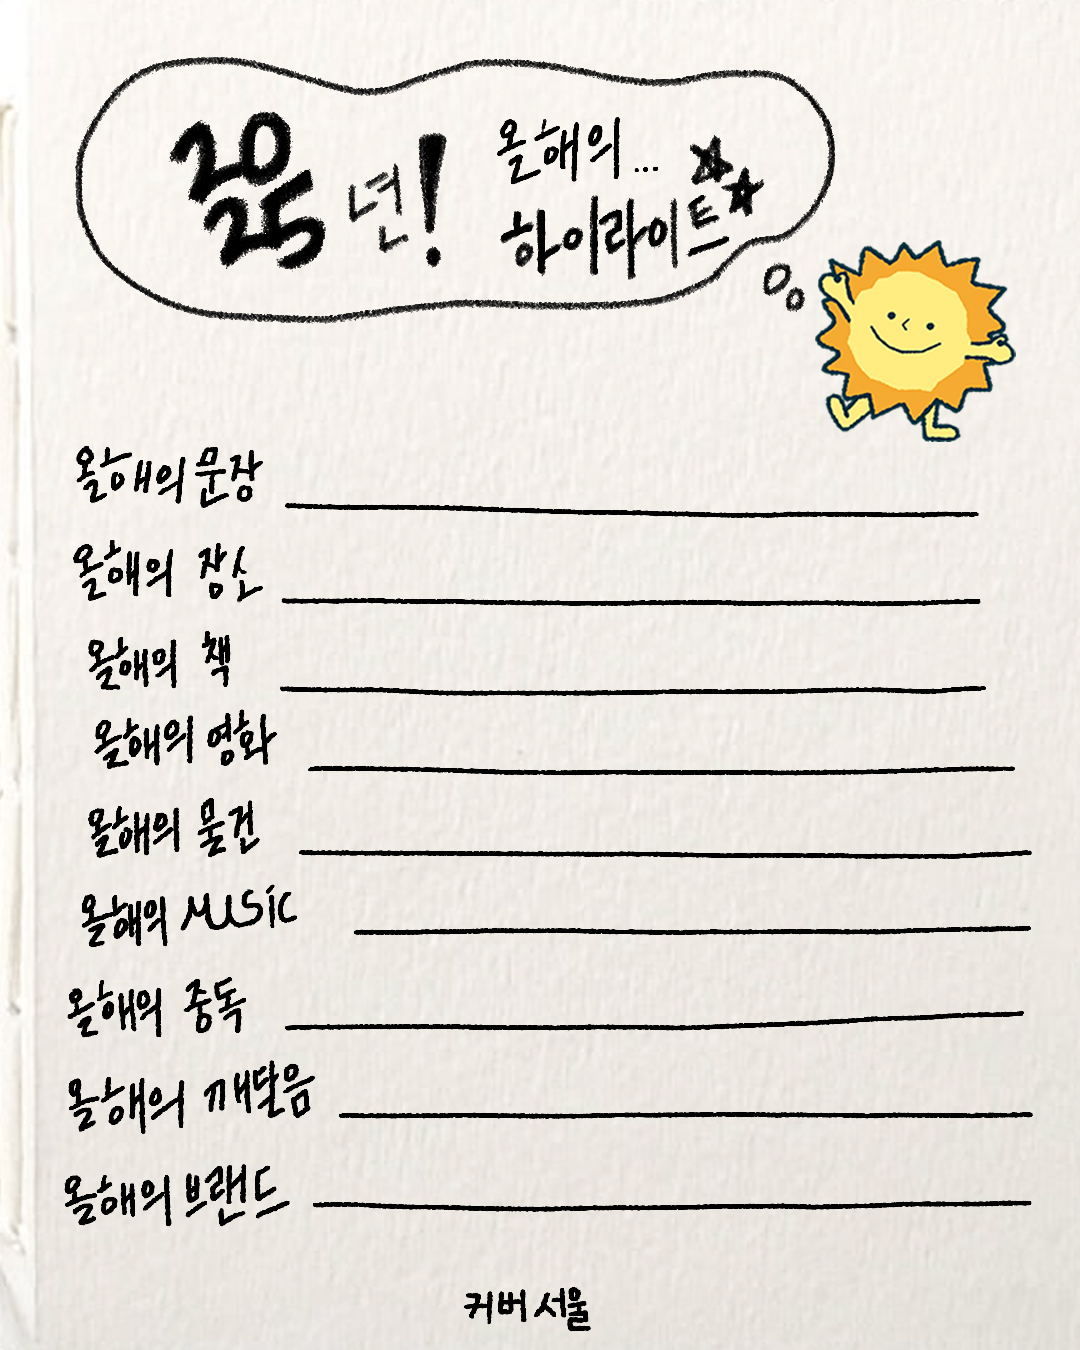 2025년!
올해의...
하이라이트
올해의 문장
올해의 장소
올해의 책
올해의 영화
올해의 물건
올해의 MUSiC
올해의 중독
올해의 깨달음
올해의 브랜드
커버 서울